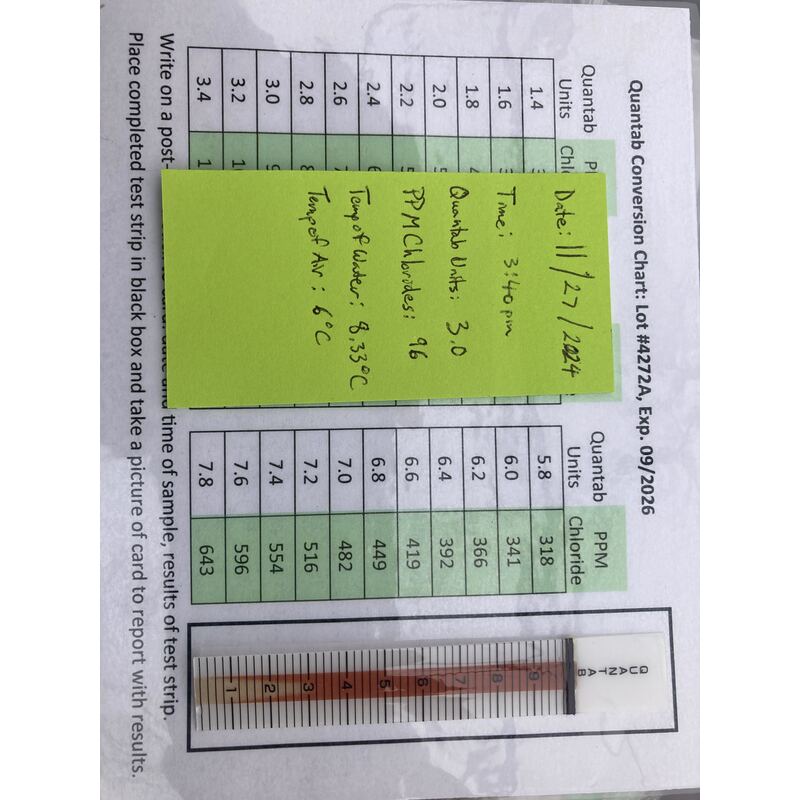 Quantab Conversion Chart: Lot #4272A, Exp. 09/2026
Quantab Units
1.4
1.6
1.8
2.0
2.2
2.4
2.6
2.8
3.0
3.2
3.4
Date: 11/27/2024
Time: 3:40pm
Quantab Units: 3.0
PPM Chlorides: 96
Temp of Water: 8.33°C
Temp of Air: 6°C
Quantab Units PPM Chloride
5.8 318
6.0 341
6.2 366
6.4 392
6.6 419
6.8 449
7.0 482
7.2 516
7.4 554
7.6 596
7.8 643
QUANTAB
9
8
7
6
5
4
3
2
1
Write on a post- time of sample, results of test strip.
Place completed test strip in black box and take a picture of card to report with results.